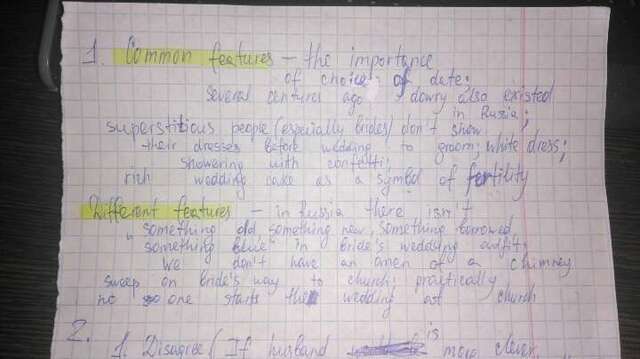 1. Common features – the importance
of choice of date;
Several centures ago dowry also existed
in Russia;
superstitious people (especially brides) don't show
their dresses before wedding to groom; white dress;
showering with confetti;
rich wedding cake as a symbol of fertility
Different features – in Russia there isn't
"something old something new, something borrowed,
something blue" in bride's wedding outfit;
we don't have an omen of a chimney
sweep on bride's way to church; practically
no one starts the wedding at church
2.
1. Disagree (If husband is more clever